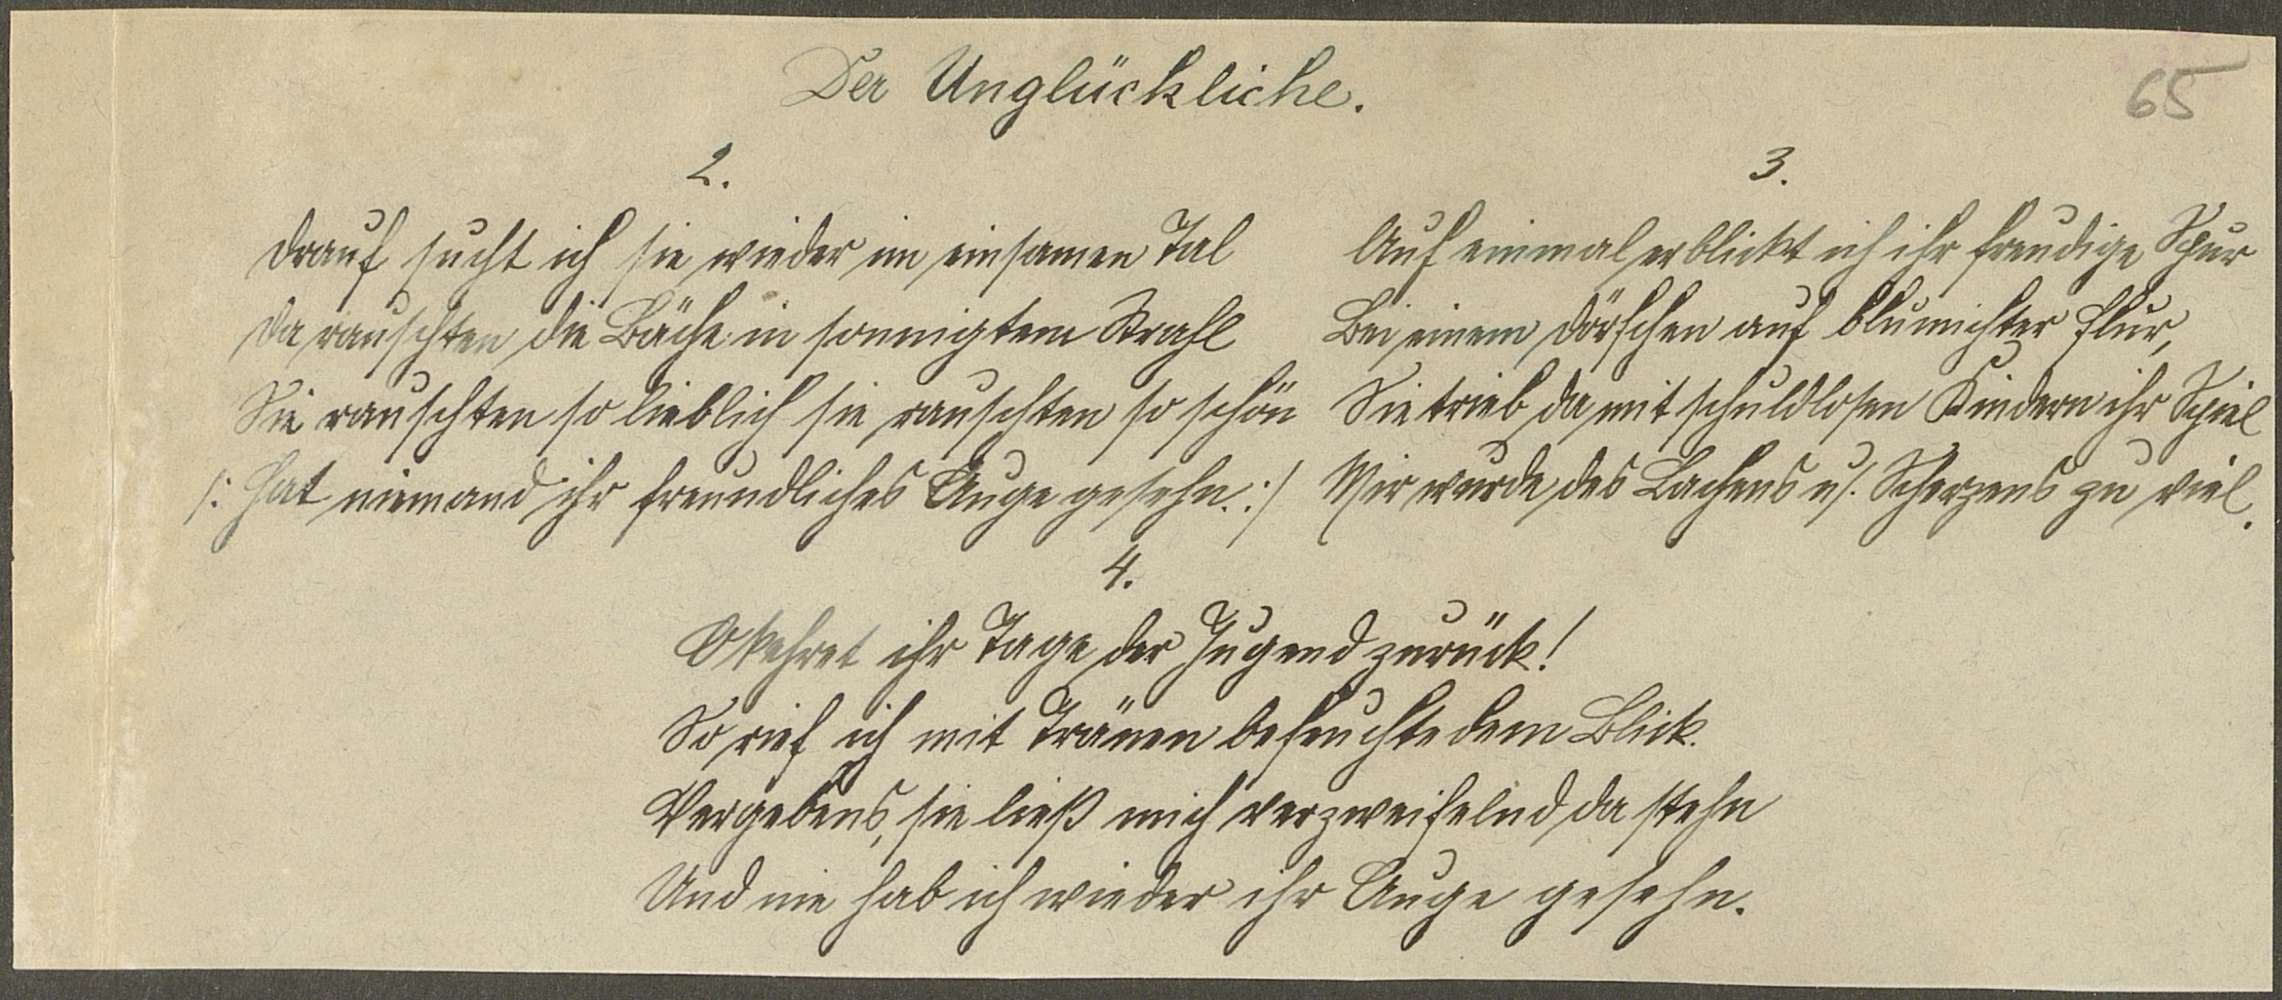 Der Unglückliche.
65
2.
Drauf sucht ich sie wieder im einsamen Tal
Da rauschten die Bäche in sonnigtem Strahl
Sie rauschten so lieblich sie rauschten so schön
/: Hat niemand ihr freundliches Auge gesehn. :/
3.
Auf einmal erblickt ich ihr freudige Spur
Bei einem Dörfchen auf blumichter Flur,
Sie trieb da mit schuldlosen Kindern ihr Spiel
Mir wurde des Lachens u. Scherzens zu viel.
4.
O kehret ihr Tage der Jugend zurück!
So rief ich mit Tränen befeuchtedem Blick.
Vergebens, sie ließ mich verzweifelnd da stehn
Und nie hab ich wieder ihr Auge gesehn.